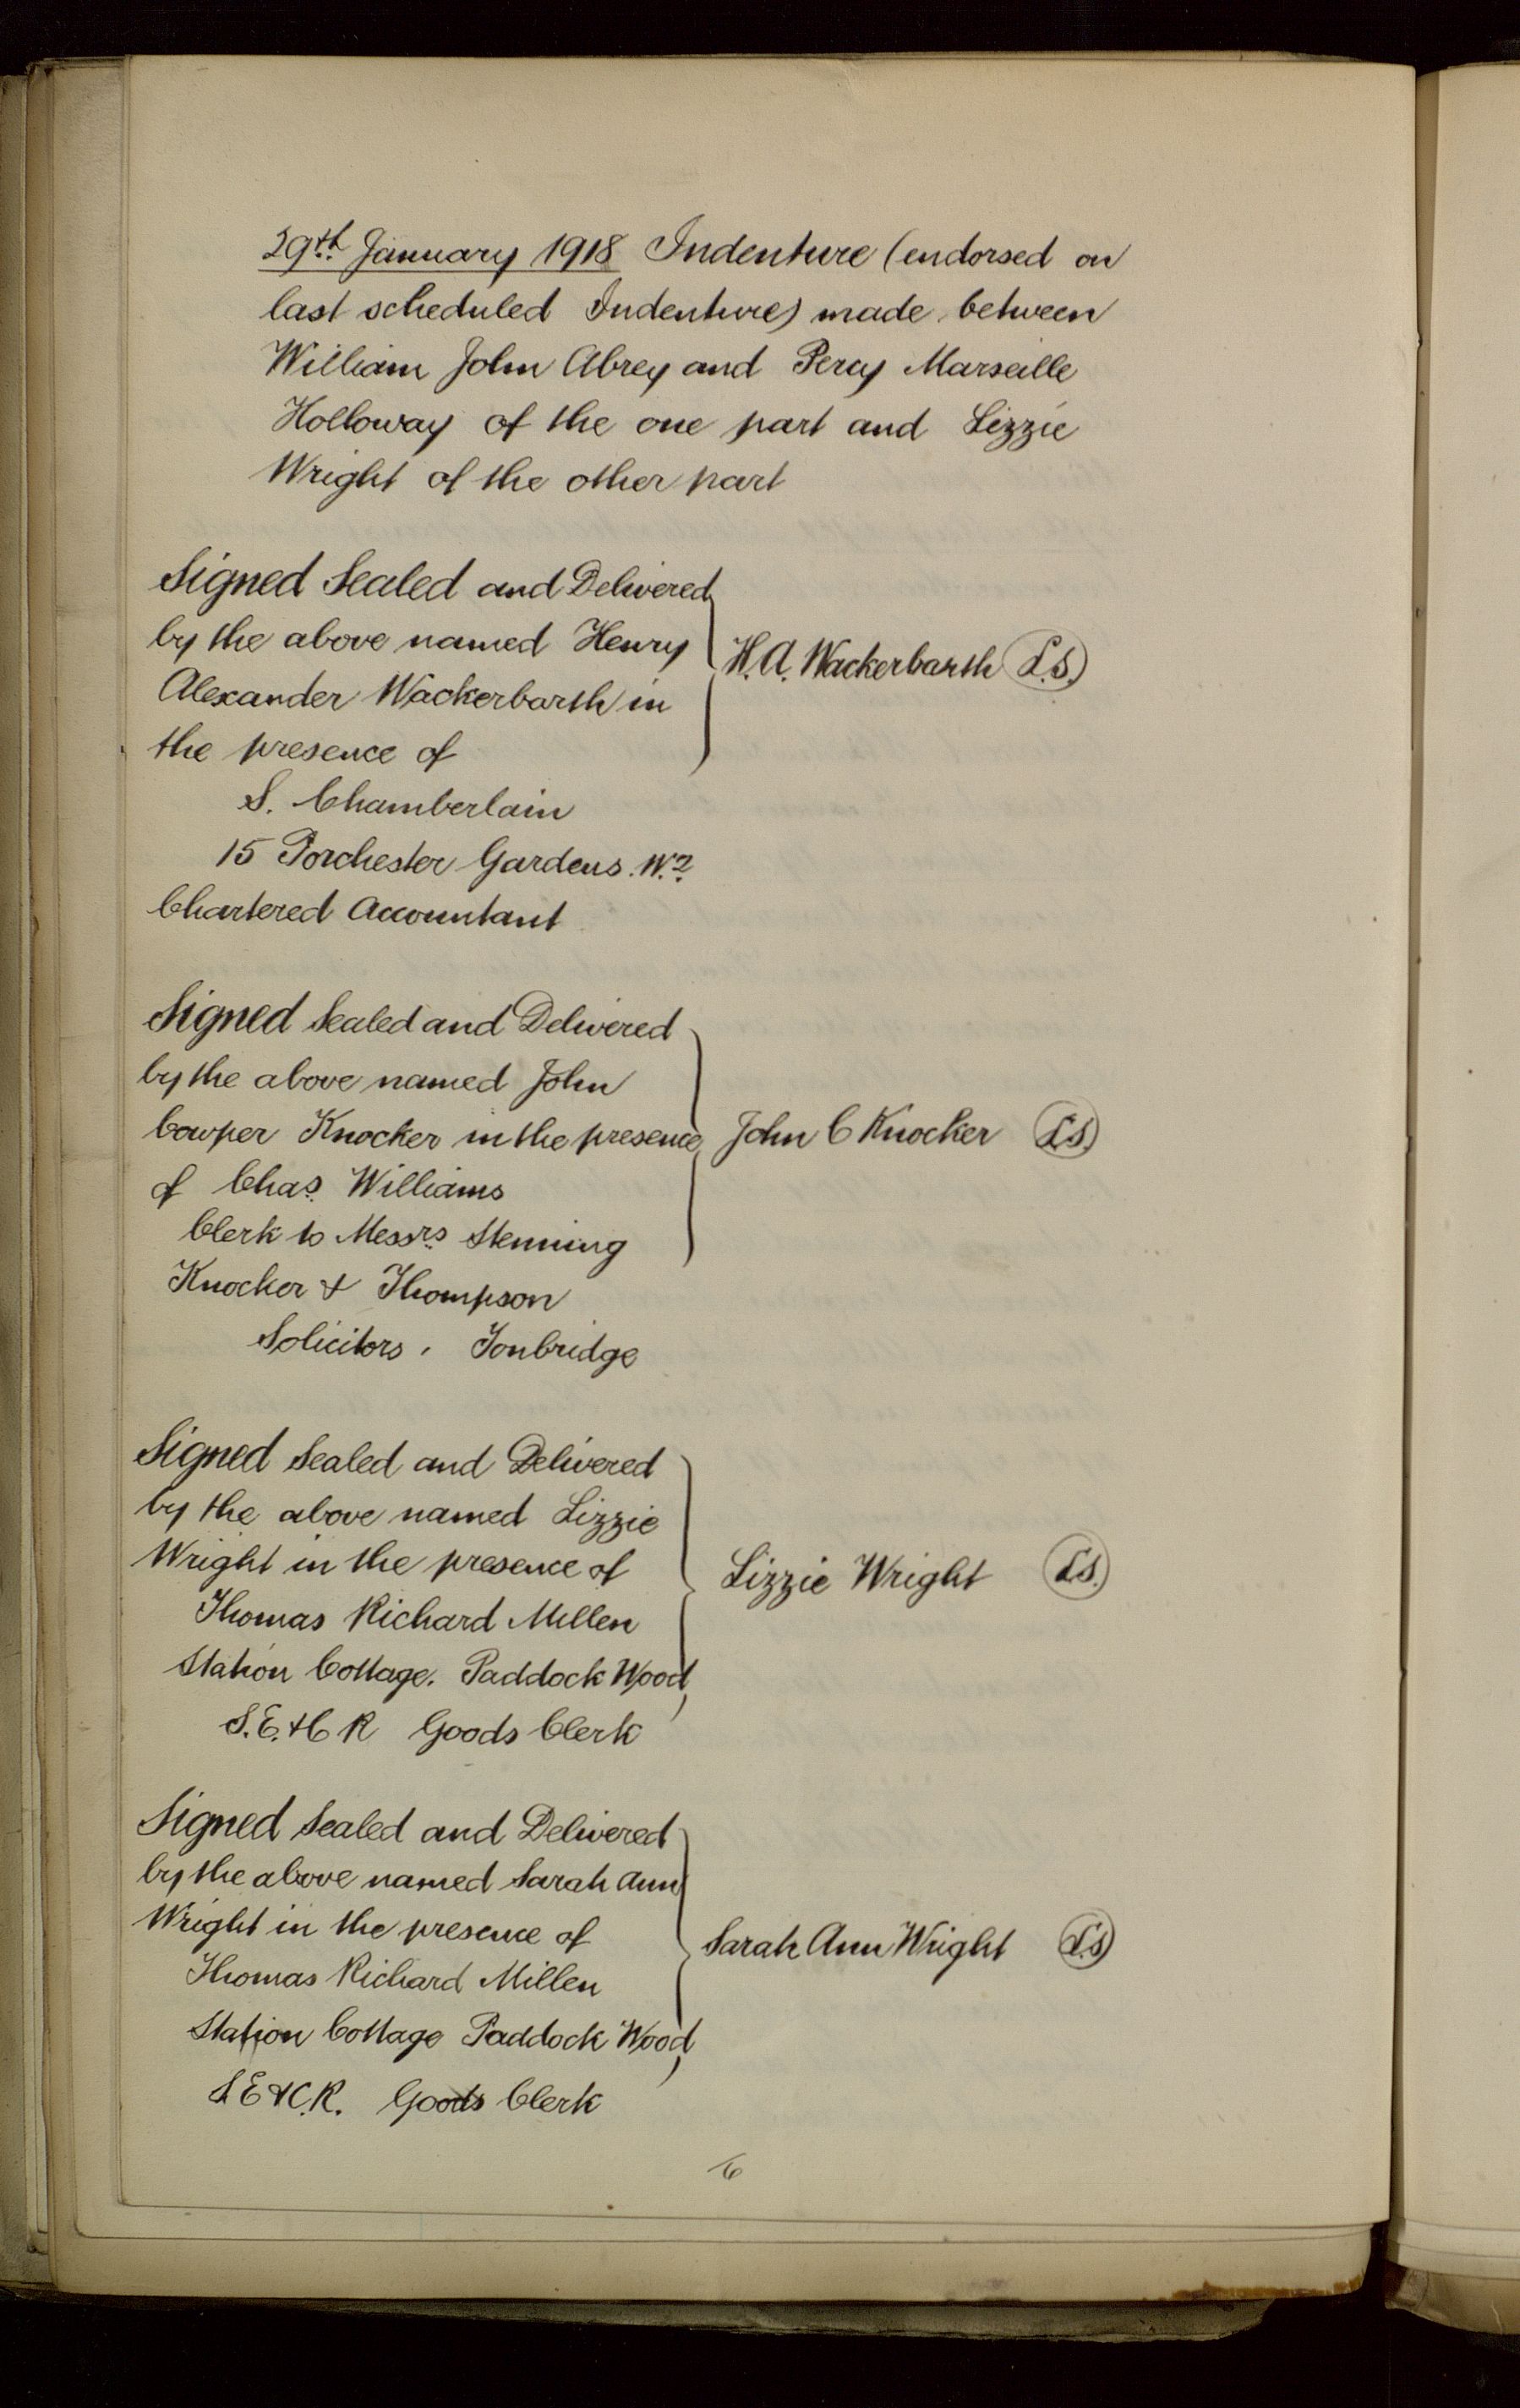 29th January 1918 Indenture (endorsed on
last scheduled Indenture) made between
William John Abrey and Percy Marseille
Holloway of the one part and Lizzie
Wright of the other part
Signed Sealed and Delivered
by the above named Henry
Alexander Wackerbarth in
the presence of
H. A. Wackerbarth L.S.
S. Chamberlain
15 Porchester Gardens. W.2.
Chartered Accountant
Signed Sealed and Delivered
by the above named John
Cowper Knocker in the presence
John C Knocker L.S.
of Chas. Williams
Clerk to Messrs Stenning
Knocker & Thompson
Solicitors, Tonbridge
Signed Sealed and Delivered
by the above named Lizzie
Wright in the presence of
Lizzie Wright L.S.
Thomas Richard Millen
Station Cottage. Paddock Wood
S.E. & C R Goods Clerk
Signed Sealed and Delivered
by the above named Sarah Ann
Wright in the presence of
Sarah Ann Wright L.S.
Thomas Richard Millen
Station Cottage Paddock Wood
S E & C.R. Goods Clerk
6